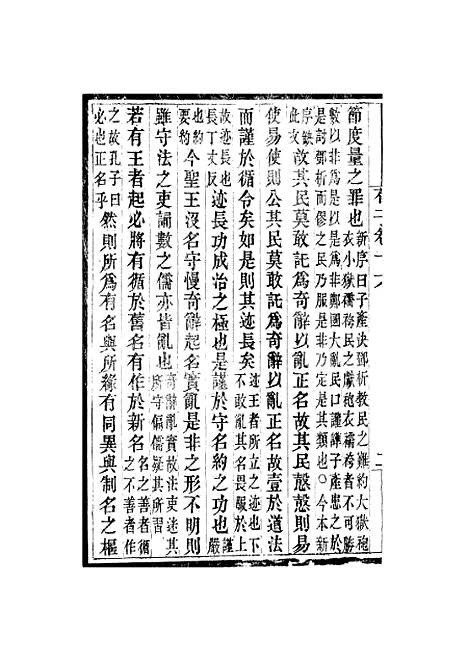 節度量之罪也新序曰子產決鄧析教民之難約大獄袍衣小獄襦袴民之獻袍衣襦袴者不可勝
數以非爲是以是爲非鄭國大亂民口讙譁子產患之於是討鄧析而僇之民乃服是非乃定是其類也○今本新
序缺此文故其民莫敢託爲奇辭以亂正名故其民慤慤則易
使易使則公其民莫敢託爲奇辭以亂正名故壹於道法
而謹於循令矣如是則其迹長矣迹王者所立之迹也下不敢亂其名畏服於上
故迹長也長丁丈反迹長功成治之極也是謹於守名約之功也謹嚴
也約今聖王沒名守慢奇辭起名實亂是非之形不明則
雖守法之吏誦數之儒亦皆亂也奇辭亂實故法吏迷其所守偏儒疑其所習
若有王者起必將有循於舊名有作於新名名之善者循之不善者作
之故孔子曰必也正名乎然則所爲有名與所緣有同異與制名之樞